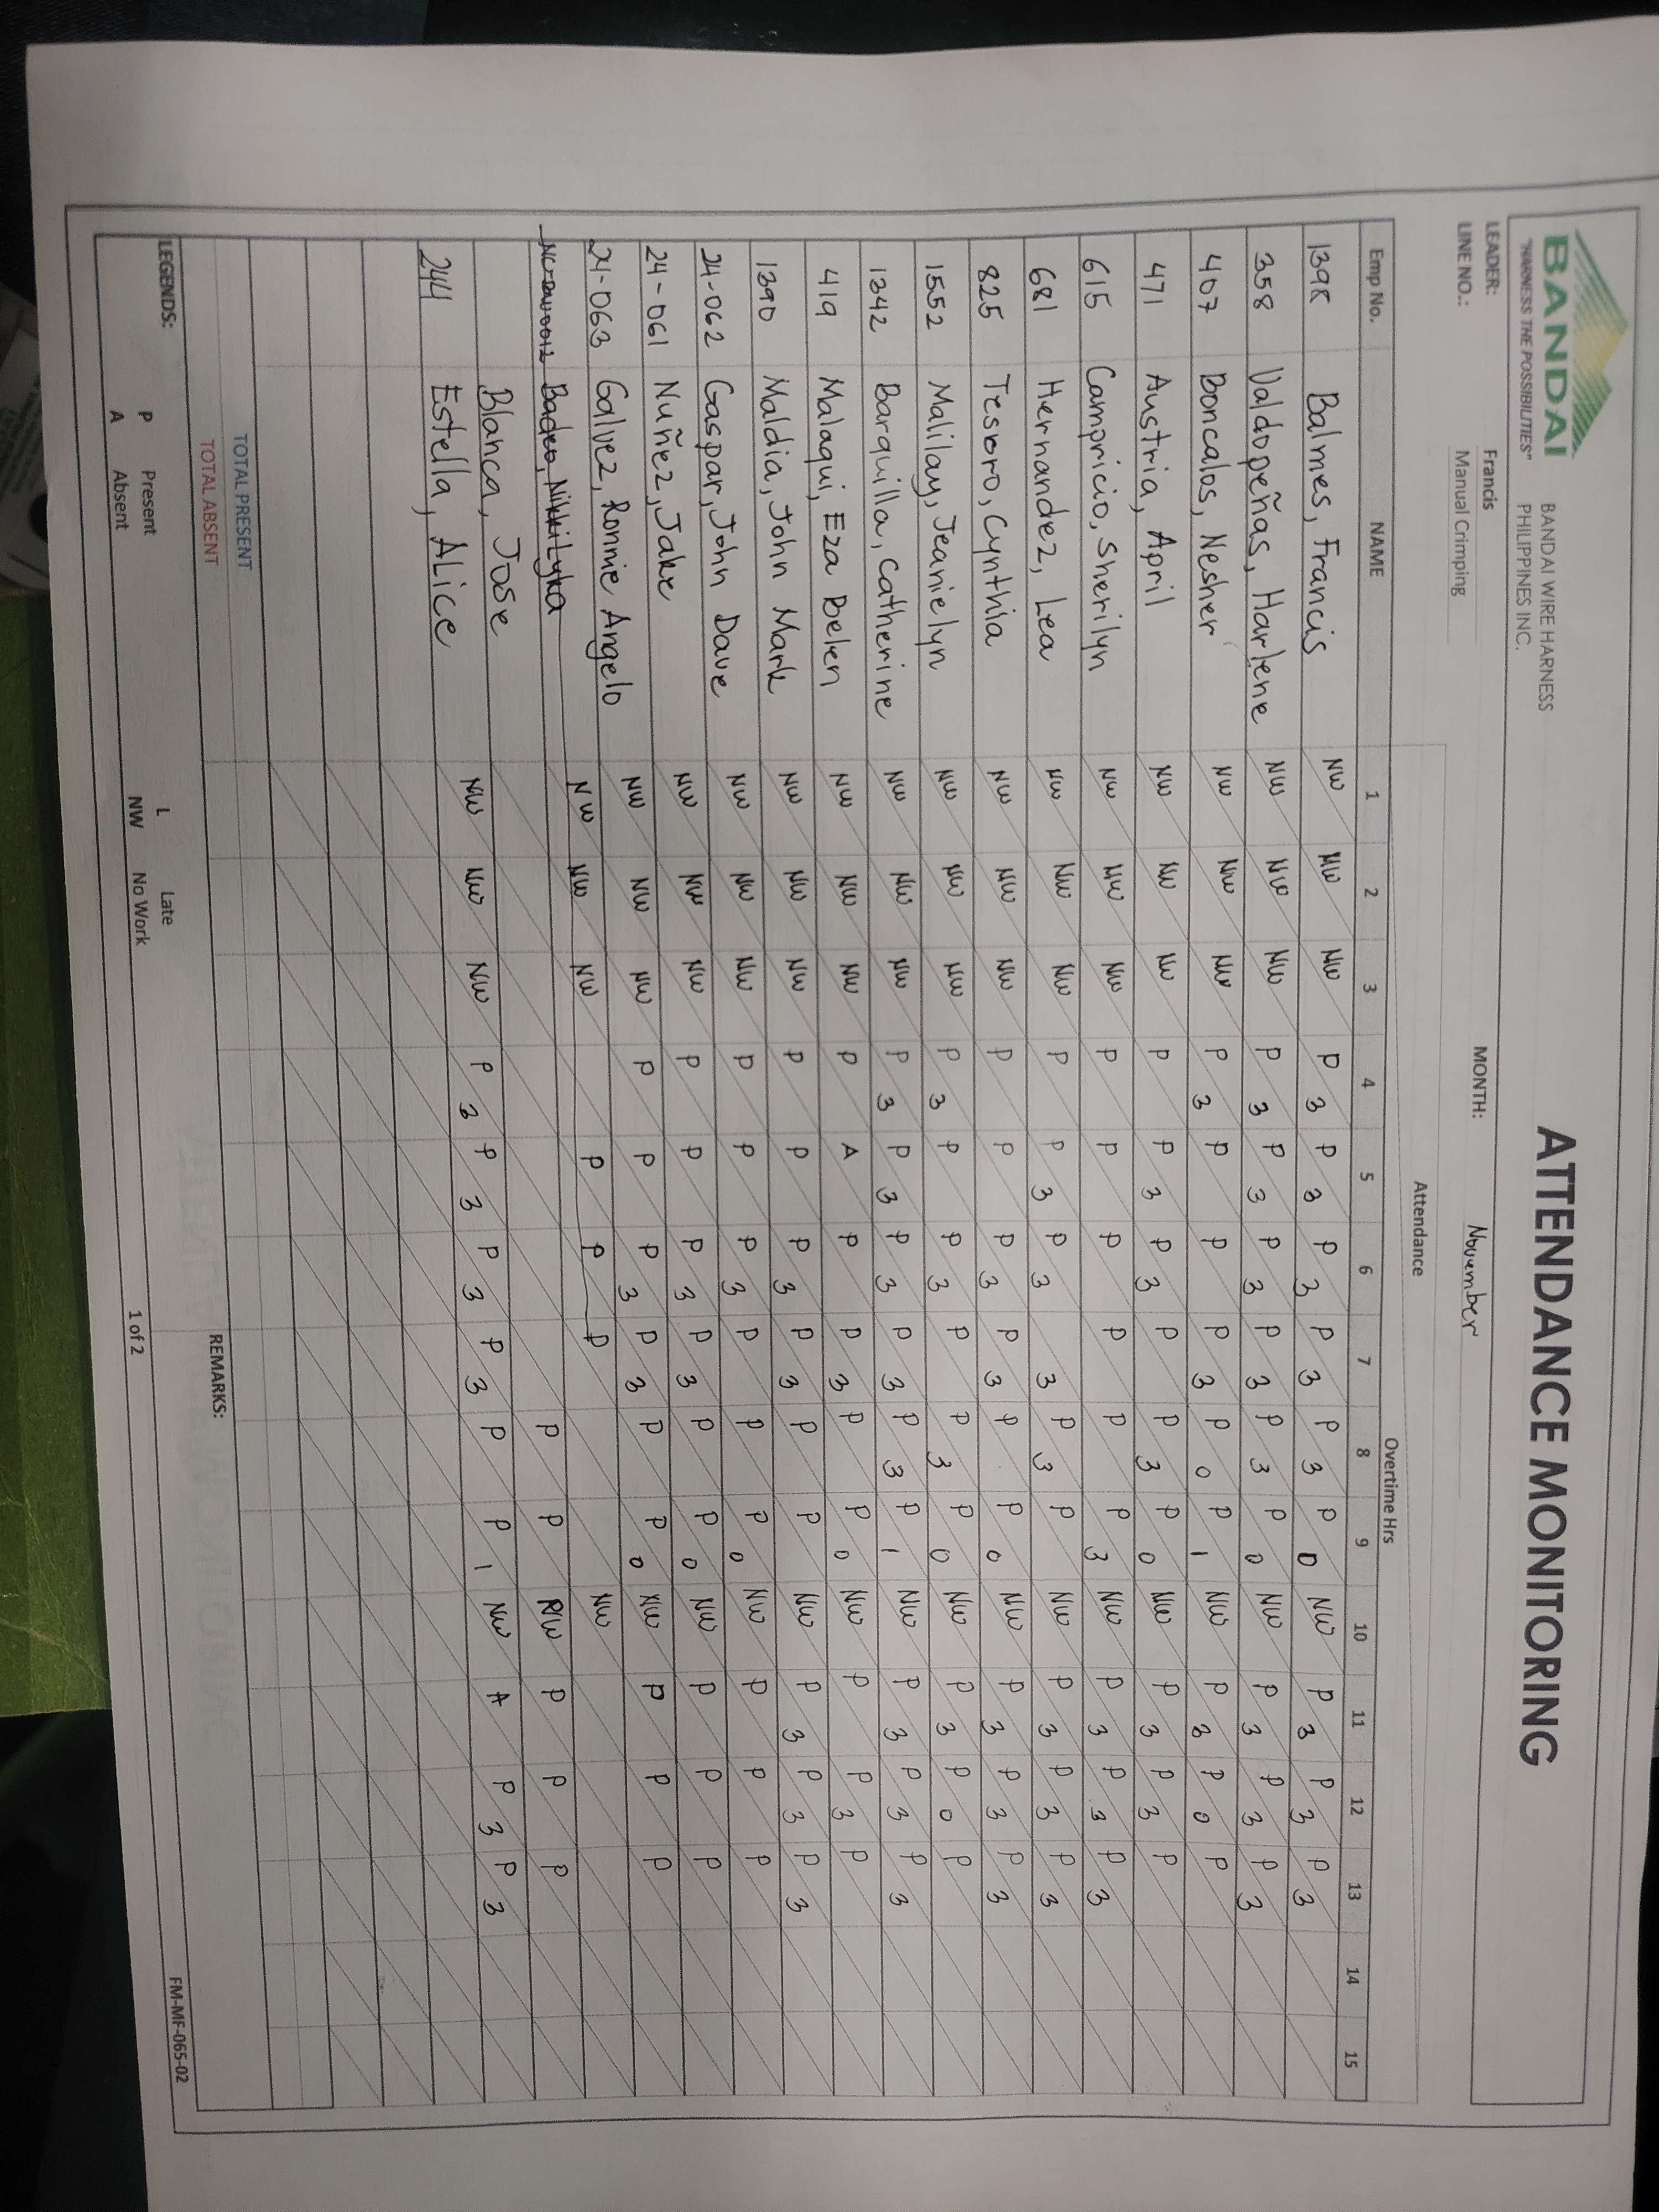 BANDAI
"HARNESS THE POSSIBILITIES"
BANDAI WIRE HARNESS
PHILIPPINES INC.
ATTENDANCE MONITORING
LEADER: Francis MONTH: November
LINE NO.: Manual Crimping
Attendance
Overtime Hrs
Emp No. NAME 1 2 3 4 5 6 7 8 9 10 11 12 13 14 15
1398 Balmes, Francis NW NW NW P 3 P 3 P 3 P 3 P 3 P 0 NW P 3 P 3 P 3
358 Valdopeñas, Harlene NW NW NW P 3 P 3 P 3 P 3 P 3 P 0 NW P 3 P 3 P 3
407 Doncalos, Nesher NW NW NW P 3 P P P 3 P 0 P 1 NW P 3 P 0 P
471 Austria, April NW NW NW P P 3 P 3 P P 3 P 0 NW P 3 P 3 P
615 Campricio, Sherilyn NW NW NW P P P P P P 3 NW P 3 P 3 P 3
681 Hernandez, Lea NW NW NW P P 3 P 3 3 P 3 P NW P 3 P 3 P 3
825 Tesoro, Cynthia NW NW NW P P P 3 P 3 P P 0 NW P 3 P 3 P 3
1552 Malilay, Jeanielyn NW NW NW P 3 P P 3 P P 3 P 0 NW P 3 P 0 P
1342 Barquilla, Catherine NW NW NW P 3 P 3 P 3 P 3 P 3 P 1 NW P 3 P 3 P 3
419 Malaqui, Eza Belen NW NW NW P A P P 3 P P 0 NW P P 3 P
1390 Maldia, John Mark NW NW NW P P P 3 P 3 P P NW P 3 P 3 P 3
24-062 Gaspar, John Dave NW NW NW P P P 3 P P P 0 NW P P P
24-061 Nuñez, Jake NW NW NW P P P 3 P 3 P P 0 NW P P P
24-063 Galvez, Ronnie Angelo NW NW NW P P P 3 P 3 P P 0 NW P P P
Badeo, Nikki Lyka NW NW NW P P P NW
Blanca, Jose P P NW P P P
244 Estella, Alice NW NW NW P 3 P 3 P 3 P 3 P P 1 NW A P 3 P 3
TOTAL PRESENT
TOTAL ABSENT
REMARKS:
LEGENDS:
P Present L Late
A Absent NW No Work
1 of 2
FM-MF-065-02